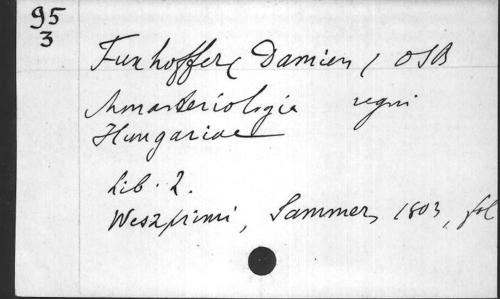 95
3
Fuxhoffer, Damien, OSB
Monasteriologia regni
Hungariae
Lib. 2.
Weszprimi, Sammer, 1803, fol